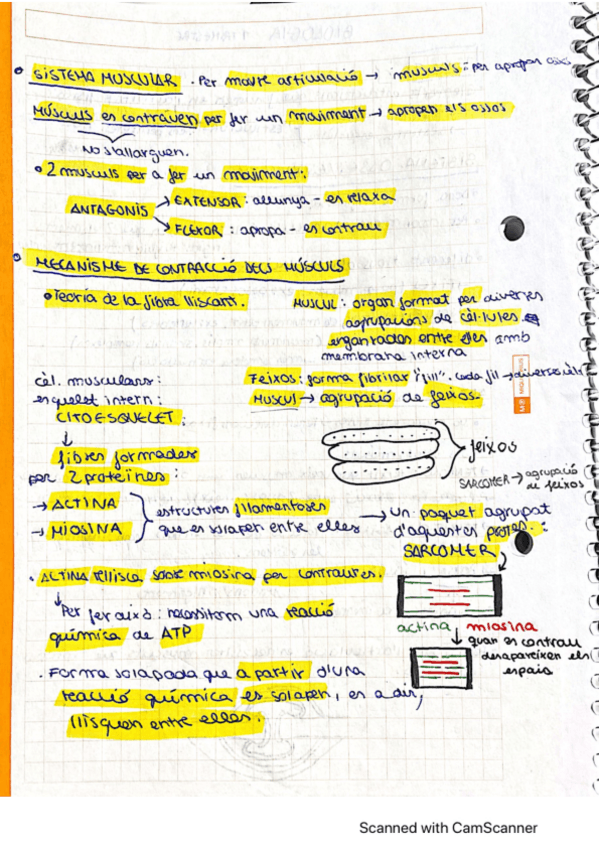 SISTEMA MUSCULAR · Per moure articulació → músculs: per apropar
MÚSCULS es contrauen per fer un moviment → apropen els ossos
No s'allarguen.
• 2 músculs per a fer un moviment:
ANTAGONIS
→ EXTENSOR: allunya - es relaxa
→ FLEXOR: apropa - es contrau
MECANISME DE CONTRACCIÓ DELS MÚSCULS
• Teoria de la fibra lliscant.
MÚSCUL: organ format per diverses
agrupacions de cèl·lules.
organitzades entre elles amb
membrana interna
cèl. musculars:
esquelet intern:
CITOESQUELET:
↓
fibres formades
per 2 proteïnes:
→ ACTINA
→ MIOSINA
estructures filamentoses
que es solapen entre elles
Feixos: forma fibrilar "fil". cada fil →
MÚSCUL → agrupació de feixos.
feixos
SARCOMER → agrupació
de feixos
→ Un paquet agrupat
d'aquestes :
SARCOMER
· ACTINA rellisca sobre miosina per contraure's.
↓ Per fer això: necessitem una reacció
química de ATP
· Forma solapada que a partir d'una
reacció química es solapen, és a dir,
llisquen entre elles.
actina miosina
↓ quan es contrau
desapareixen els
espais
Scanned with CamScanner